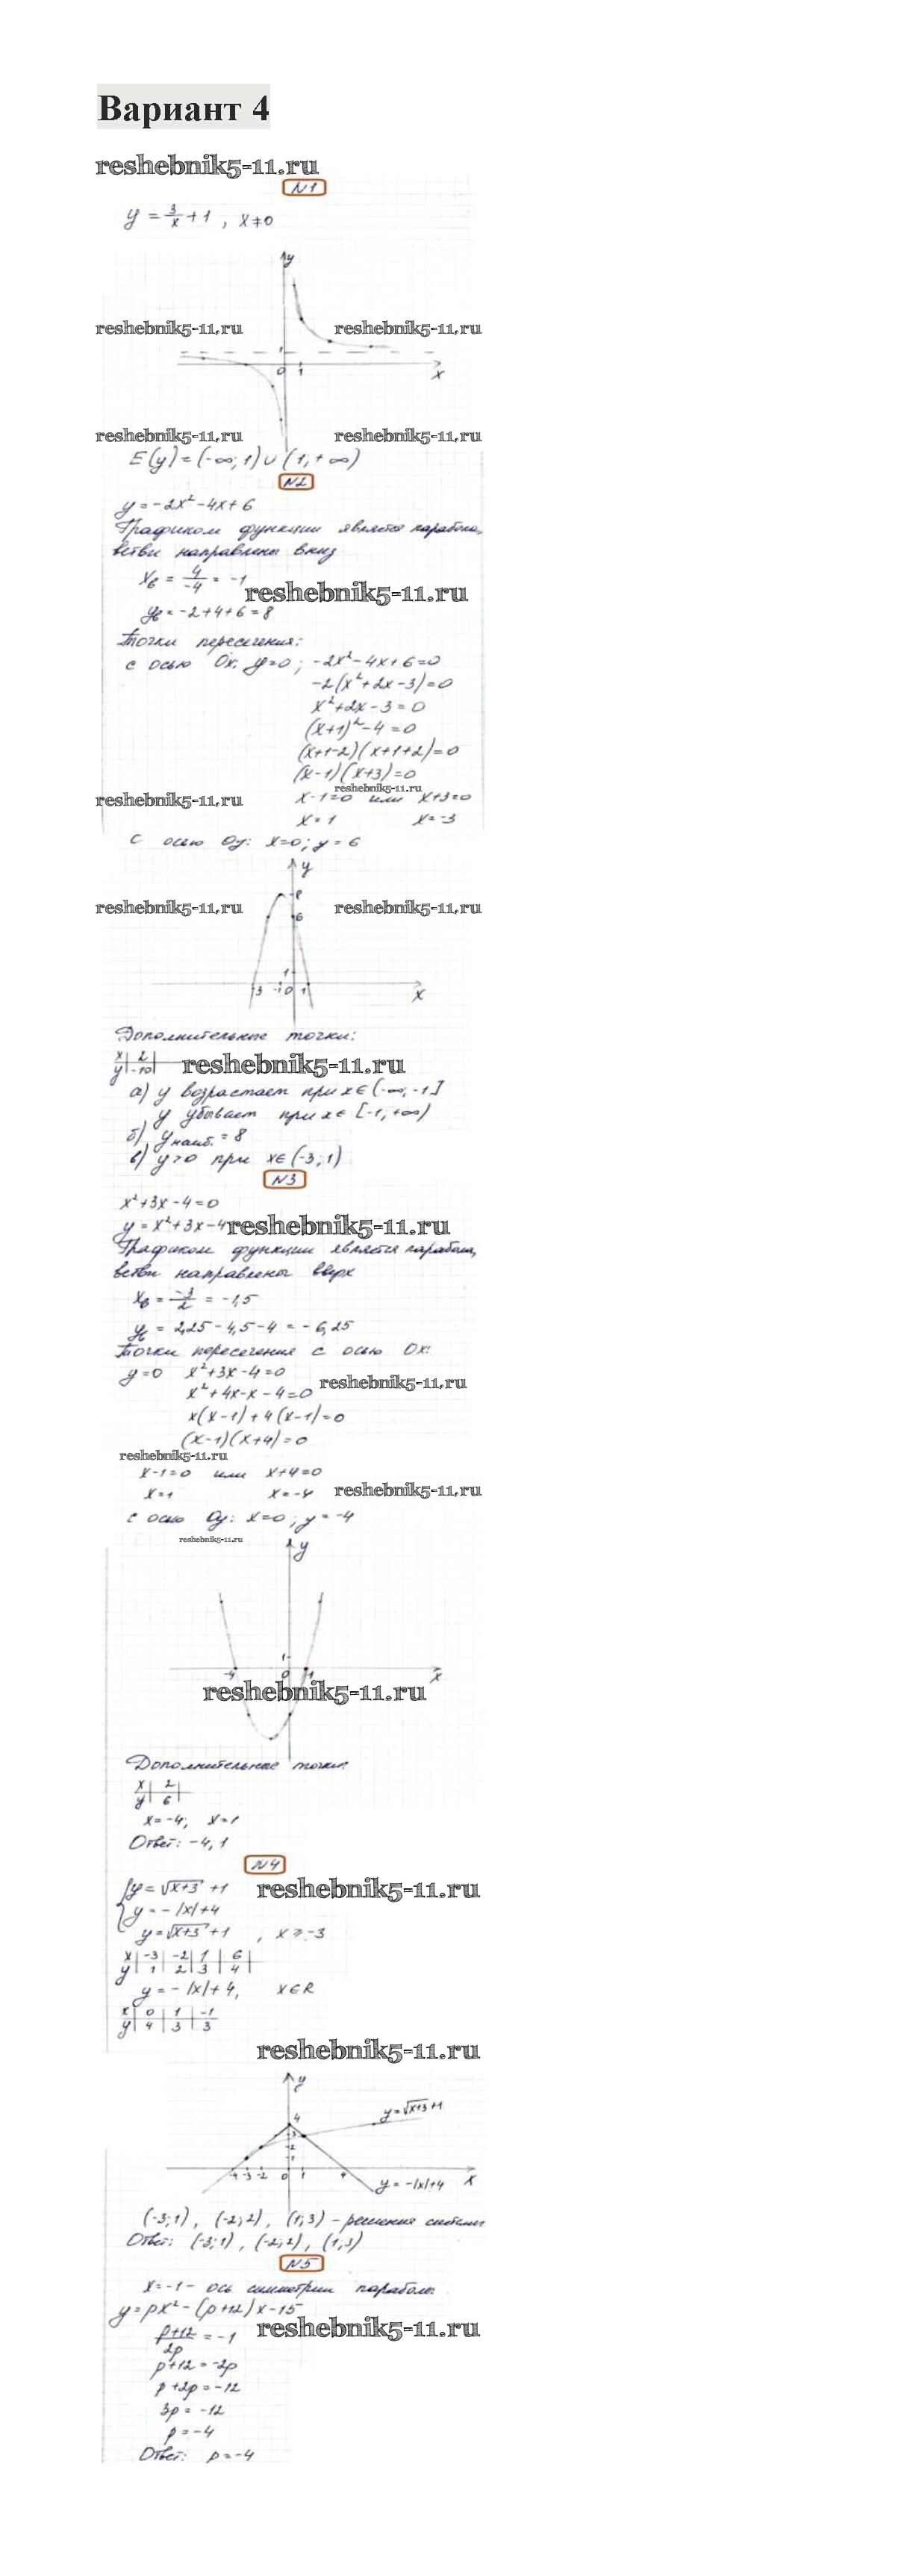 Вариант 4
reshebnik5-11.ru
N1
y = 3/x + 1 , x≠0
y
reshebnik5-11.ru reshebnik5-11.ru
1
0 1 x
reshebnik5-11.ru reshebnik5-11.ru
E(y)=(-∞;1)∪(1,+∞)
N2
y=-2x²-4x+6
Графиком функции является парабола,
ветви направлены вниз
x₆ = 4/-4 = -1
reshebnik5-11.ru
y₆ = -2+4+6=8
Точки пересечения:
с осью Ox: y=0; -2x²-4x+6=0
-2(x²+2x-3)=0
x²+2x-3=0
(x+1)²-4=0
(x+1-2)(x+1+2)=0
(x-1)(x+3)=0
reshebnik5-11.ru
reshebnik5-11.ru x-1=0 или x+3=0
x=1 x=-3
с осью Oy: x=0; y=6
y
8
reshebnik5-11.ru reshebnik5-11.ru
6
1
-3 -1 0 1 x
Дополнительные точки:
x | 2 |
reshebnik5-11.ru
y | -10 |
а) y возрастает при x∈(-∞,-1]
y убывает при x∈[-1,+∞)
б) y наиб. = 8
в) y>0 при x∈(-3;1)
N3
x²+3x-4=0
y=x²+3x-4 reshebnik5-11.ru
Графиком функции является парабола,
ветви направлены вверх
x₆ = -3/2 = -1,5
y₆ = 2,25-4,5-4 = -6,25
Точки пересечения с осью Ox:
y=0 x²+3x-4=0
reshebnik5-11.ru
x²+4x-x-4=0
x(x-1)+4(x-1)=0
(x-1)(x+4)=0
reshebnik5-11.ru
x-1=0 или x+4=0
x=1 x=-4 reshebnik5-11.ru
с осью Oy: x=0; y=-4
reshebnik5-11.ru
y
1
-4 0 1 x
reshebnik5-11.ru
Дополнительные точки:
x | 2 |
y | 6 |
x=-4; x=1
Ответ: -4, 1
N4
{y=√x+3 +1 reshebnik5-11.ru
y=-|x|+4
y=√x+3 +1 , x≥-3
x | -3 | -2 | 1 | 6 |
y | 1 | 2 | 3 | 4 |
y=-|x|+4, x∈R
x | 0 | 1 | -1
y | 4 | 3 | 3
reshebnik5-11.ru
y
y=√x+3+1
4
3
2
1
-4 -3 -2 0 1 4 x
y=-|x|+4
(-3;1), (-2;2), (1;3) - решения системы
Ответ: (-3;1), (-2;2), (1;3)
N5
x=-1 - ось симметрии параболы
y=px²-(p+12)x-15
reshebnik5-11.ru
p+12/2p = -1
p+12=-2p
p+2p=-12
3p=-12
p=-4
Ответ: p=-4